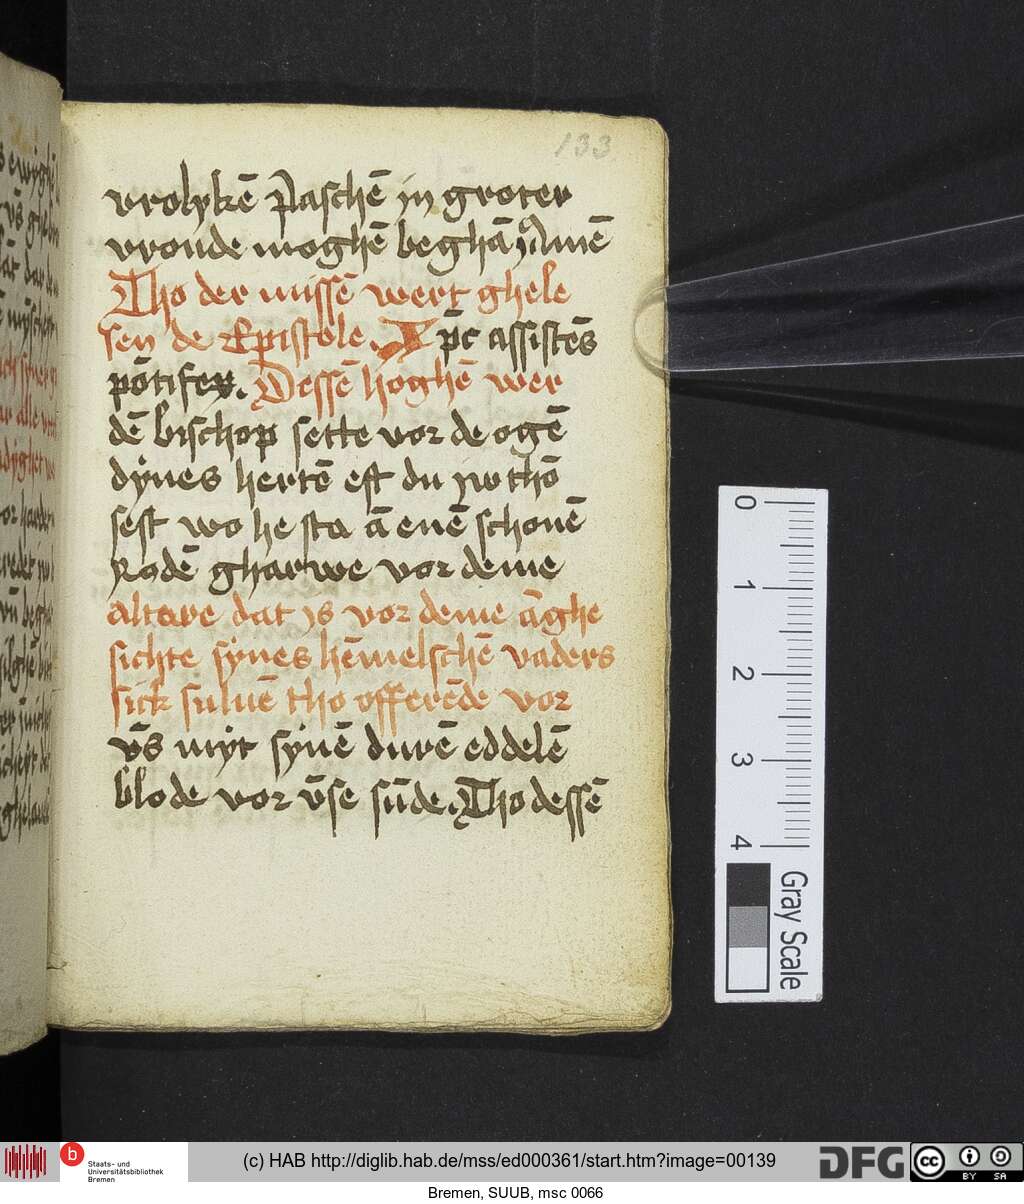 133
vrolykē Paschē in groter
vroude moghē beghā Amē
Tho der missē wert ghele
sen de Epistole. X p̄c assistēs
pōtifex. Dessē hoghē wer
dē bischop sette vor de ogē
dÿnes hertē eft du yw thō
sest wo he sta ā enē schonē
rodē gharwe vor deme
altare dat ys vor deme āghe
sichte sÿnes hēmelschē vaders
sick suluē tho offerēde vor
v̄s myt sÿnē durē eddelē
blode vor v̄se sūde. Tho dessē
0
1
2
3
4
Gray Scale
b
Staats- und
Universitätsbibliothek
Bremen
(c) HAB http://diglib.hab.de/mss/ed000361/start.htm?image=00139
DFG
cc
BY SA
Bremen, SUUB, msc 0066